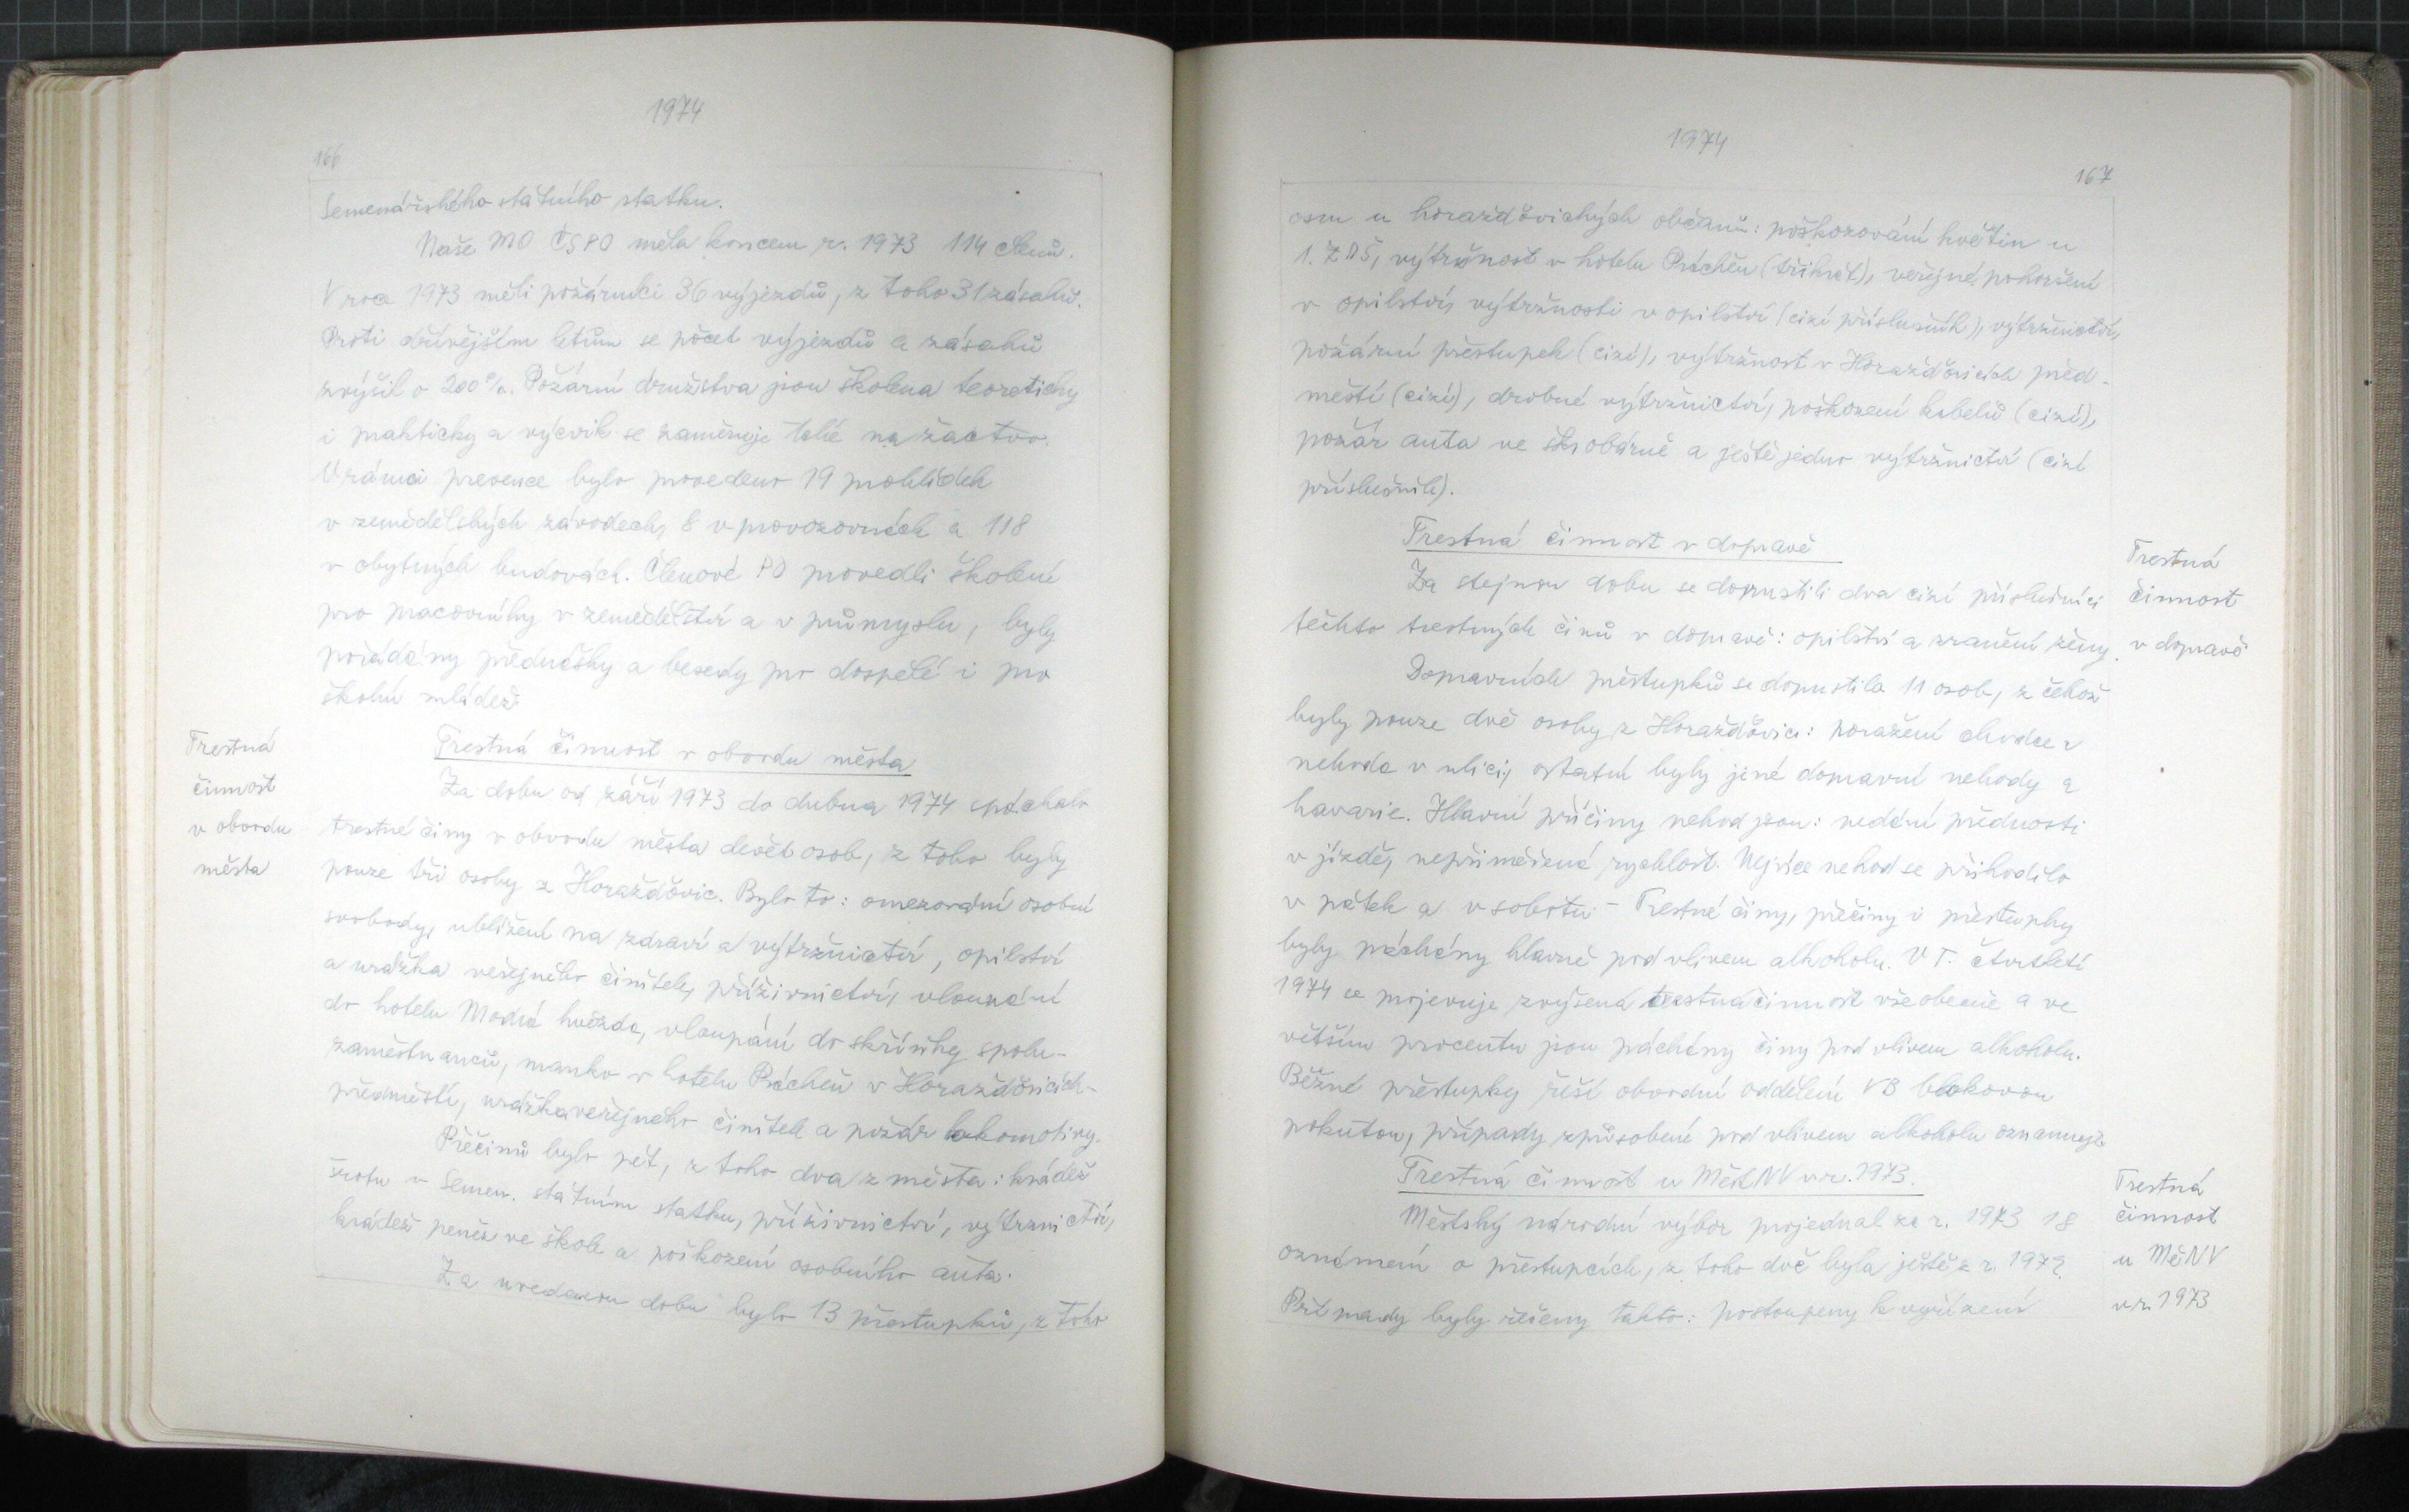 1974
166
Semenářského státního statku.
Naše MO ČSPO měla koncem r. 1973 114 členů.
V roce 1973 měli požárníci 36 výjezdů, z toho 31 zásahů.
Proti dřívějším letům se počet výjezdů a zásahů
zvýšil o 200%. Požární družstva jsou školena teoreticky
i prakticky a výcvik se zaměřuje také na žactvo.
V rámci prevence bylo provedeno 19 prohlídek
v zemědělských závodech, 8 v provozovnách a 118
v obytných budovách. Členové PO provedli školení
pro pracovníky v zemědělství a v průmyslu, byly
pořádány přednášky a besedy pro dospělé i pro
školní mládež.
Trestná
činnost
v obvodu
města
Trestná činnost v obvodu města
Za dobu od září 1973 do dubna 1974 spáchalo
trestné činy v obvodu města devět osob, z toho byly
pouze tři osoby z Horažďovic. Bylo to: omezování osobní
svobody, ublížení na zdraví a výtržnictví, opilství
a urážka veřejného činitele, příživnictví, vloupání
do hotelu Modrá hvězda, vloupání do skříňky spolu-
zaměstnanců, manko v hotelu Prácheň v Horažďovicích-
předměstí, urážka veřejného činitele a požár lokomotivy.
Přečinů bylo pět, z toho dva z města: krádež
šrotu v Semen. státním statku, příživnictví, výtržnictví,
krádež peněz ve škole a poškození osobního auta.
Za uvedenou dobu bylo 13 přestupků, z toho
1974
167
osm u horažďovických občanů: poškozování květin u
1. ZDŠ, výtržnost v hotelu Prácheň (třikrát), veřejné pohoršení
v opilství, výtržnosti v opilství (cizí příslušník), výtržnictví,
požární přestupek (cizí), výtržnost v Horažďovicích před-
městí (cizí), drobné výtržnictví, poškození kabelů (cizí),
požár auta ve škrobárně a ještě jedno výtržnictví (cizí
příslušník).
Trestná činnost v dopravě
Trestná
činnost
v dopravě
Za stejnou dobu se dopustili dva cizí příslušníci
těchto trestných činů v dopravě: opilství a zranění ženy.
Dopravních přestupků se dopustila 11 osob, z čehož
byly pouze dvě osoby z Horažďovic: poražení chodce a
nehoda v ulici, ostatní byly jiné dopravní nehody a
havarie. Hlavní příčiny nehod jsou: nedání přednosti
v jízdě, nepřiměřená rychlost. Nejvíce nehod se přihodilo
v pátek a v sobotu. - Trestné činy, přečiny i přestupky
byly páchány hlavně pod vlivem alkoholu. V I. čtvrtletí
1974 se projevuje zvýšená trestná činnost všeobecně a ve
větším procentu jsou páchány činy pod vlivem alkoholu.
Běžné přestupky řeší obvodní oddělení VB blokovou
pokutou, případy způsobené pod vlivem alkoholu oznamuje
Trestná činnost u MěstNV v r. 1973.
Trestná
činnost
u MěNV
v r. 1973
Městský národní výbor projednal za r. 1973 18
oznámení o přestupcích, z toho dvě byla ještě z r. 1972.
Případy byly řešeny takto: postoupeny k vyřízení